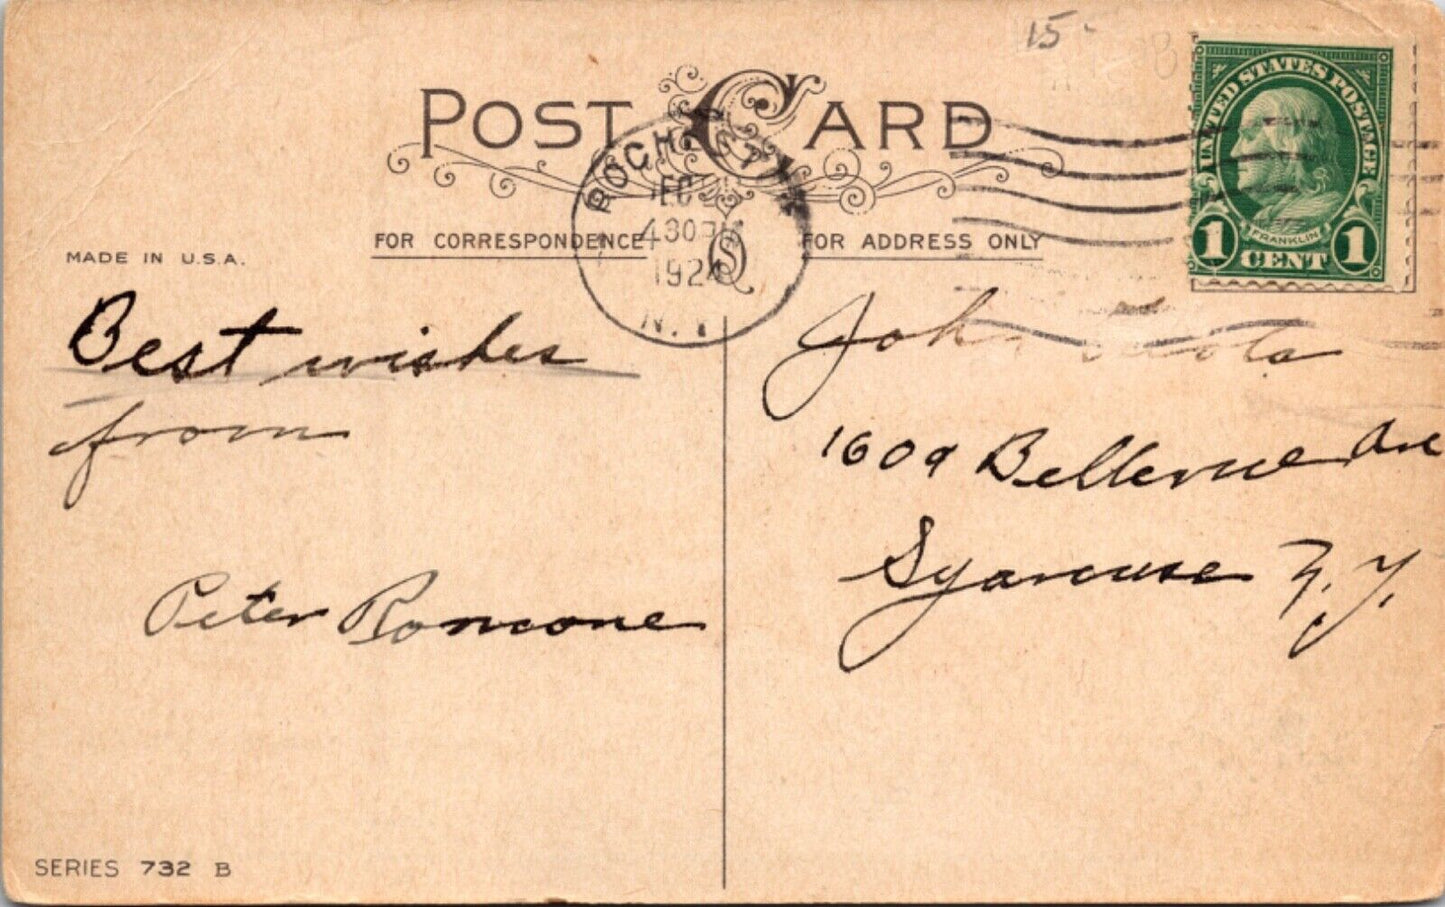 15-
POST CARD
UNITED STATES POSTAGE
FRANKLIN
1 CENT 1
ROCHESTER
DEC
430PM
1924
N.Y.
FOR CORRESPONDENCE
FOR ADDRESS ONLY
MADE IN U.S.A.
Best wishes
from
Peter Romcone
John
1609 Bellevue Ave
Syracuse N.Y.
SERIES 732 B